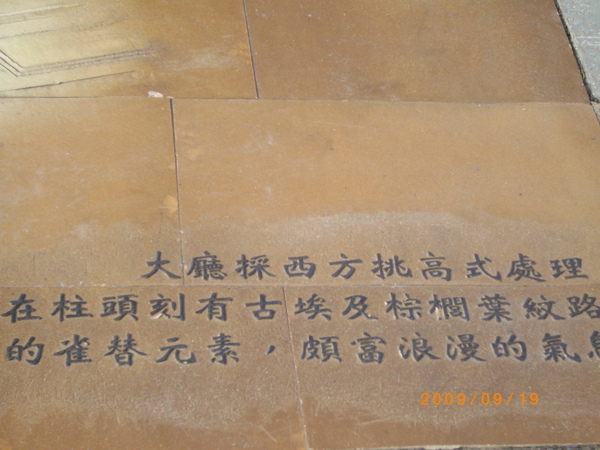 大廳採西方挑高式處理
在柱頭刻有古埃及棕櫚葉紋路
的雀替元素，頗富浪漫的氣息
2009/09/19